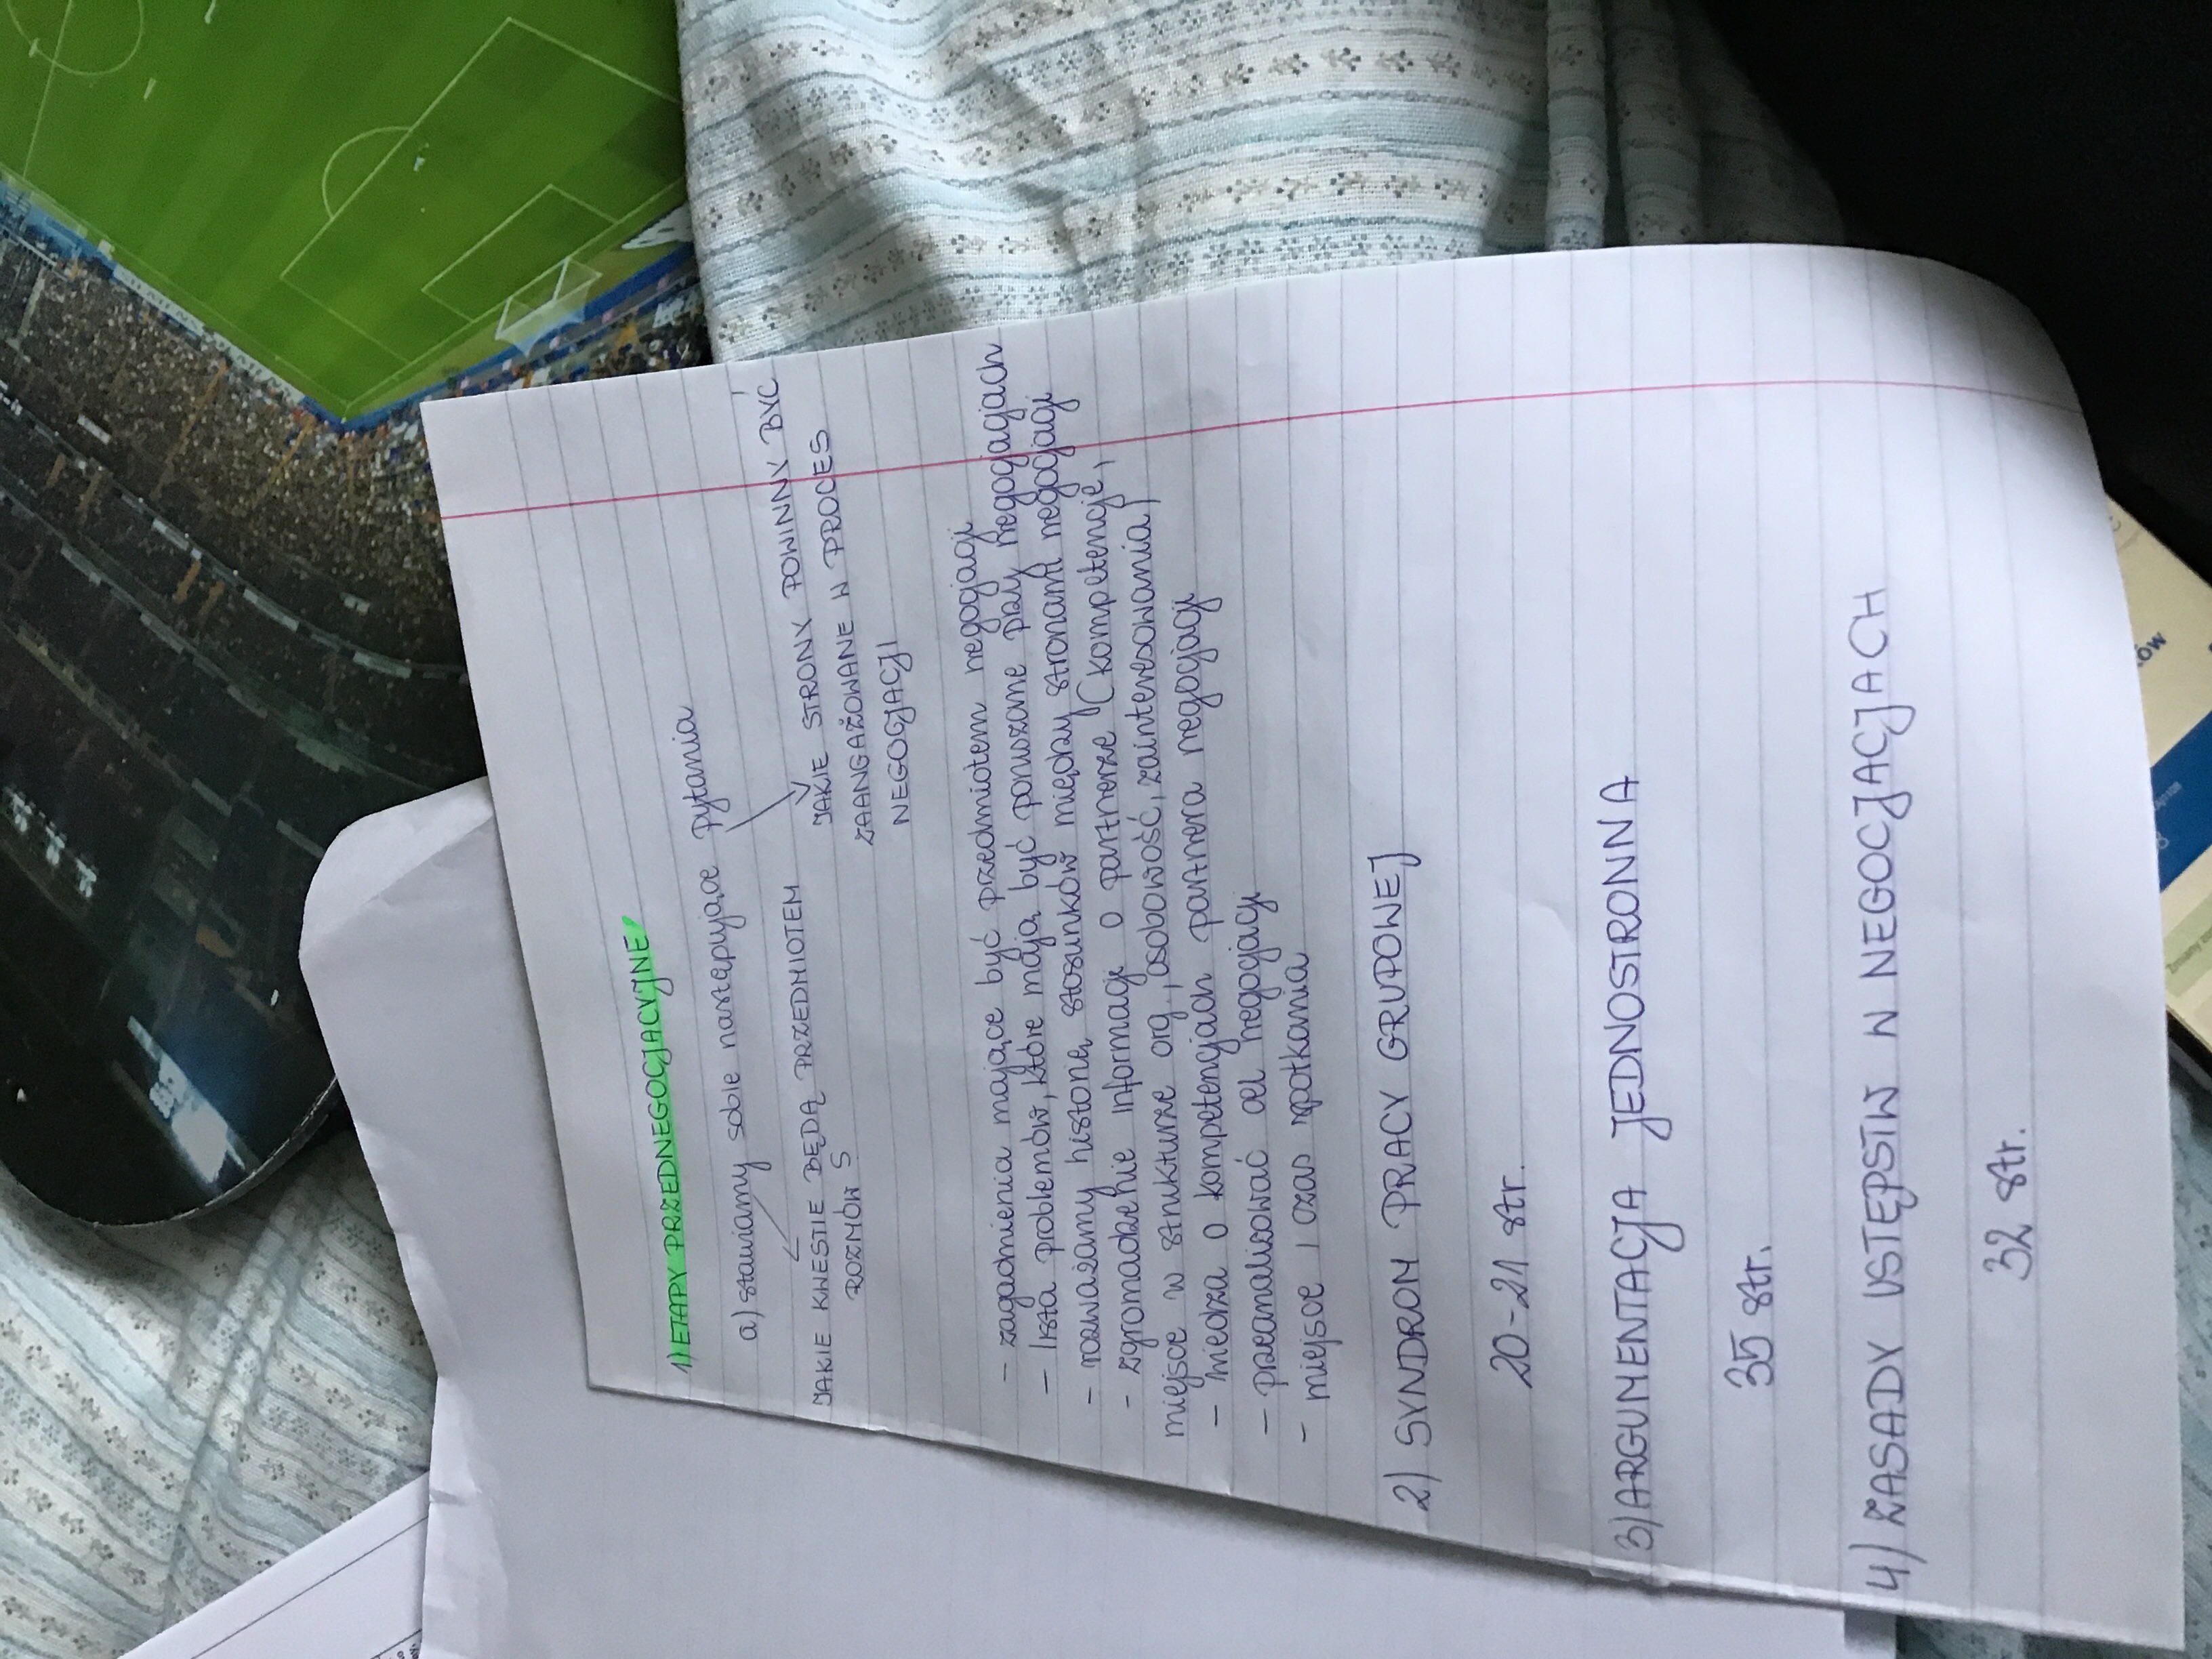 1) ETAPY PRZEDNEGOCJACYJNE
a) stawiamy sobie następujące pytania
JAKIE KWESTIE BĘDĄ PRZEDMIOTEM
ROZMÓW
JAKIE STRONY POWINNY BYĆ
ZAANGAŻOWANE W PROCES
NEGOCJACJI
- zagadnienia mające być przedmiotem negocjacji
- lista problemów, które mają być poruszane przy negocjacjach
- rozważamy historię stosunków między stronami negocjacji
- zgromadzenie informacji o partnerze (kompetencje,
miejsce w strukturze org., osobowość, zainteresowania)
- wiedza o kompetencjach partnera negocjacji
- przeanalizować cel negocjacji
- miejsce i czas spotkania
2) SYNDROM PRACY GRUPOWEJ
20-21 str.
3) ARGUMENTACJA JEDNOSTRONNA
35 str.
4) ZASADY USTĘPSTW W NEGOCJACJACH
32 str.
ÓW